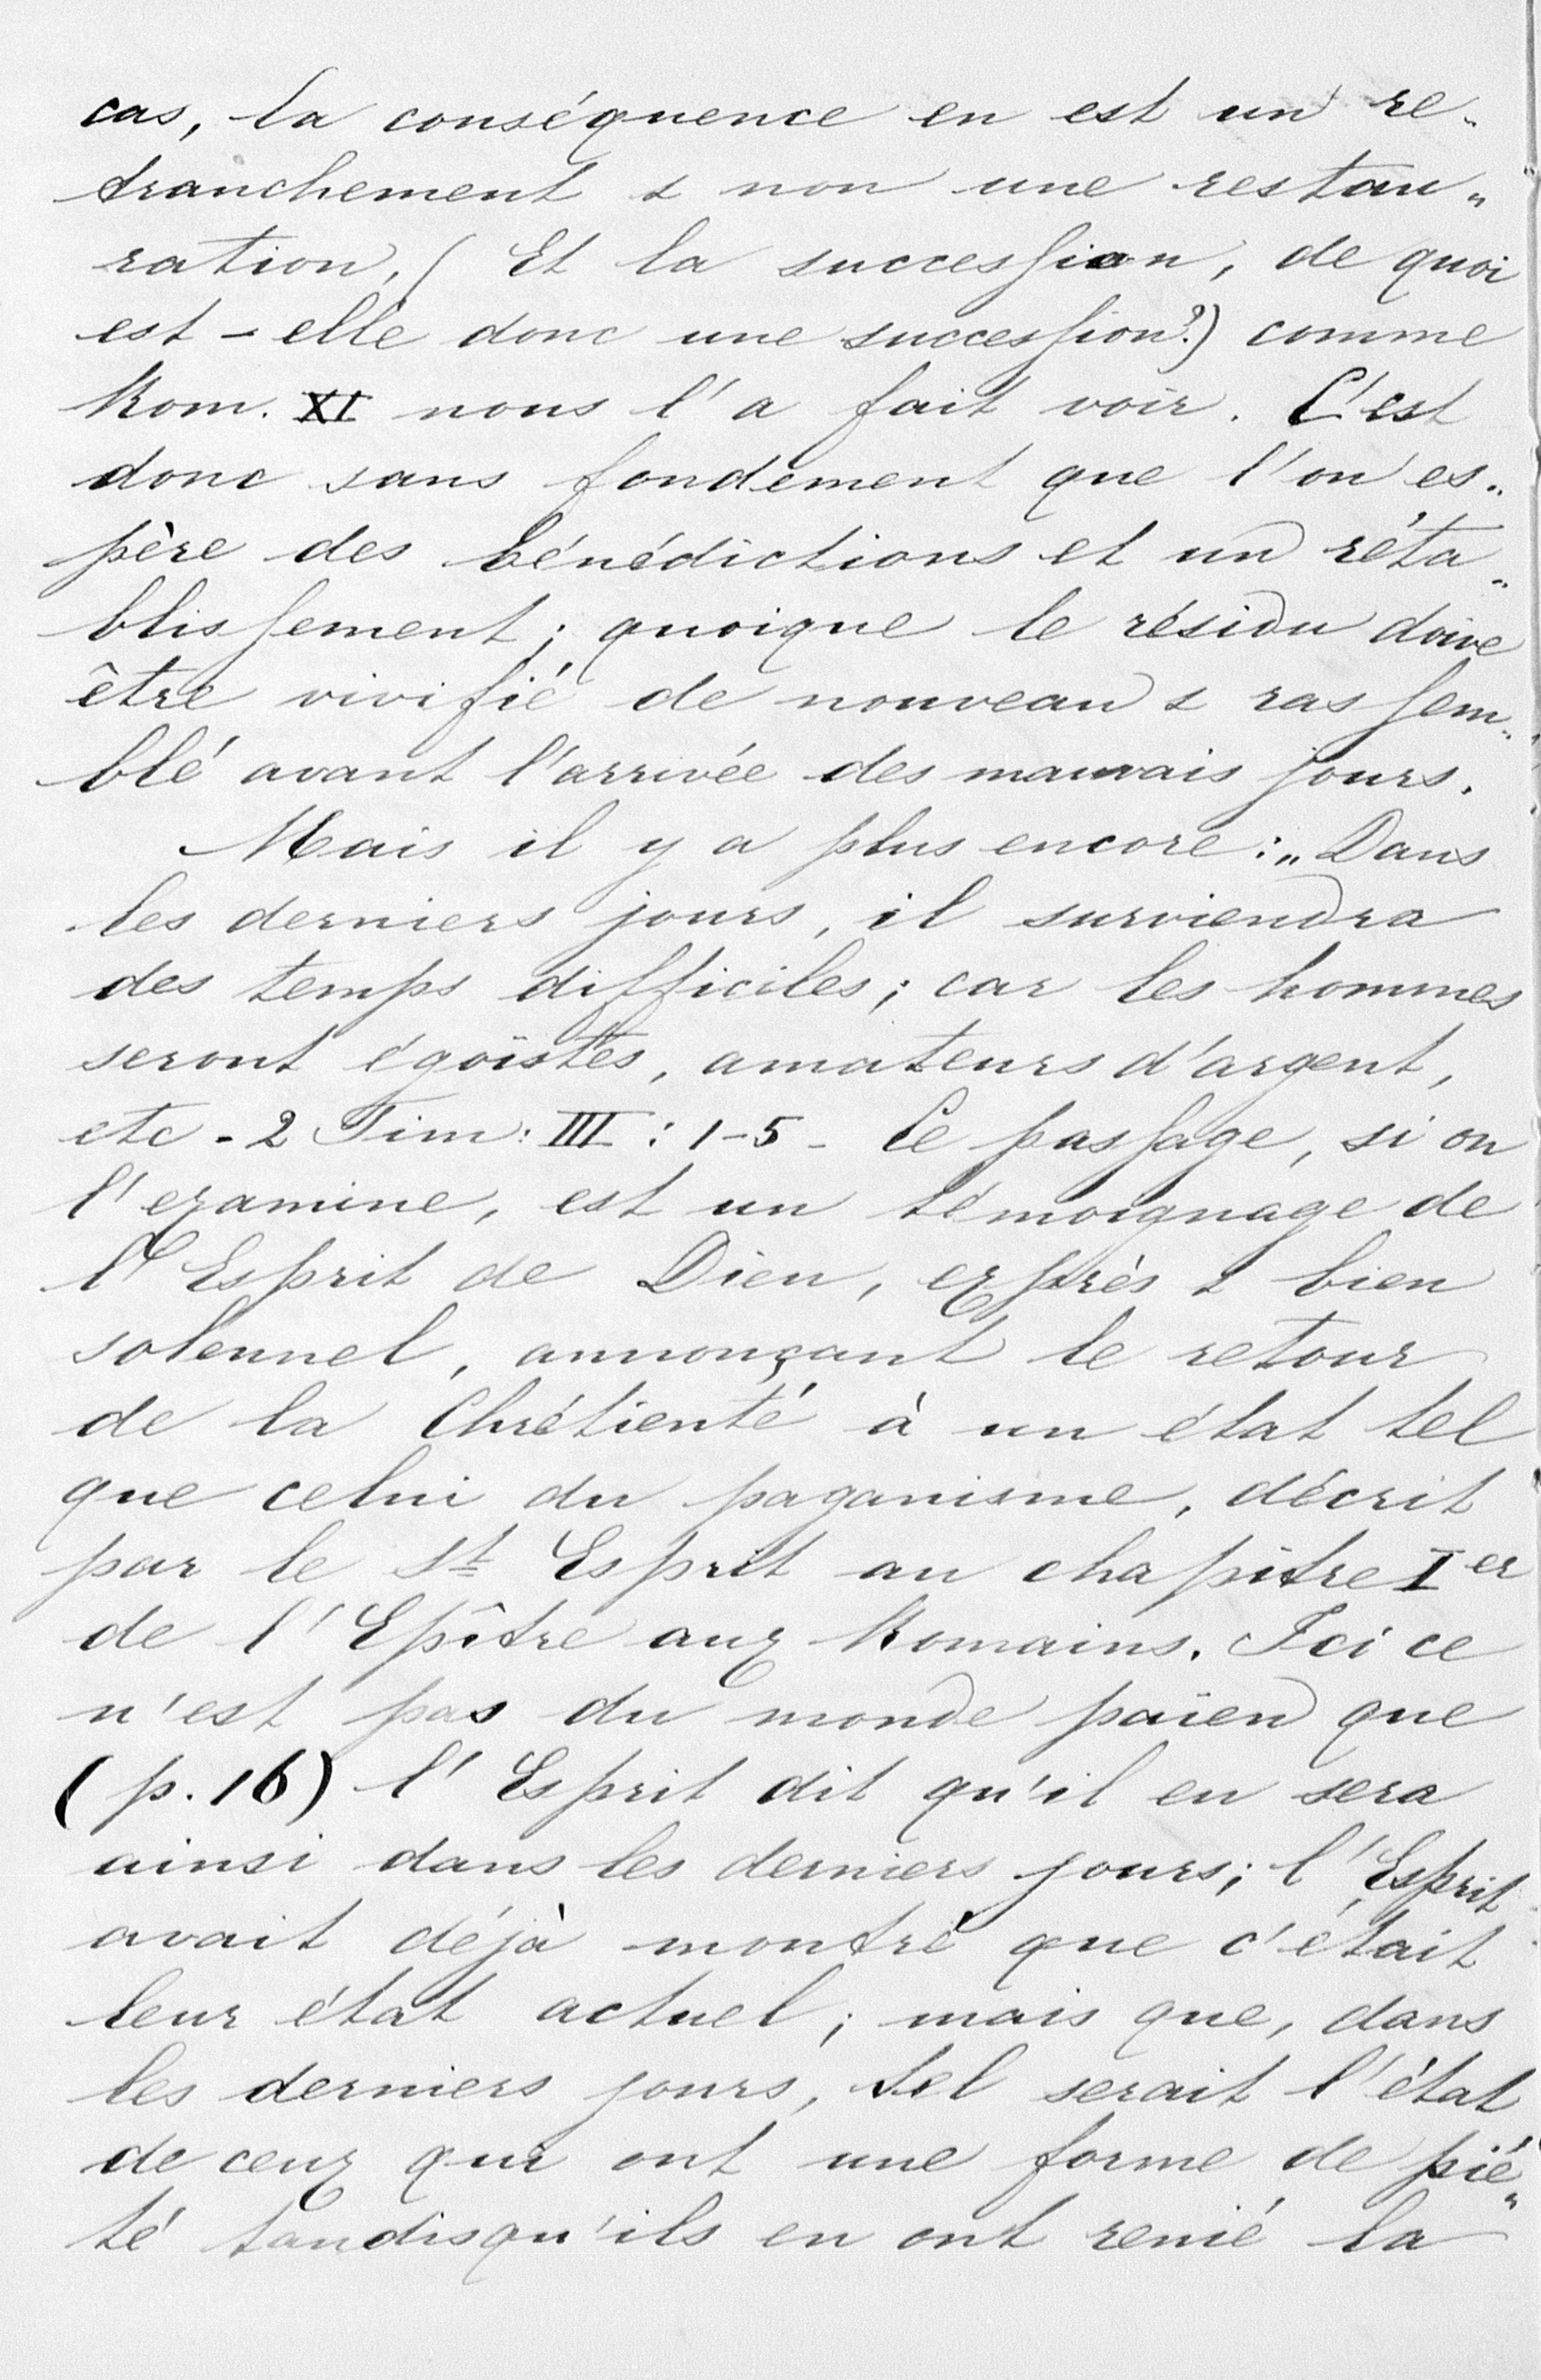 cas, la conséquence en est un re„
tranchement & non une restau„
ration, (Et la succession, de quoi
est-elle donc une succession?) comme
Rom. XI nous l'a fait voir. C'est
donc sans fondement que l'on es„
père des bénédictions et un réta„
blissement; quoique le résidu doive
être vivifié de nouveau & rassem„
blé avant l'arrivée des mauvais jours.
Mais il y a plus encore: „Dans
les derniers jours, il surviendra
des temps difficiles; car les hommes
seront égoïstes, amateurs d'argent,
etc. 2 Tim: III: 1-5 - Ce passage, si on
l'examine, est un témoignage de
l'Esprit de Dieu, exprès & bien
solennel, annonçant le retour
de la Chrétienté à un état tel
que celui du paganisme, décrit
par le St Esprit au chapitre Ier
de l'Epître aux Romains. Ici ce
n'est pas du monde païen que
(p.16) l'Esprit dit qu'il en sera
ainsi dans les derniers jours; l'Esprit
avait déjà montré que c'était
leur état actuel; mais que, dans
les derniers jours, tel serait l'état
de ceux qui ont une forme de pié„
té tandisqu'ils en ont renié la